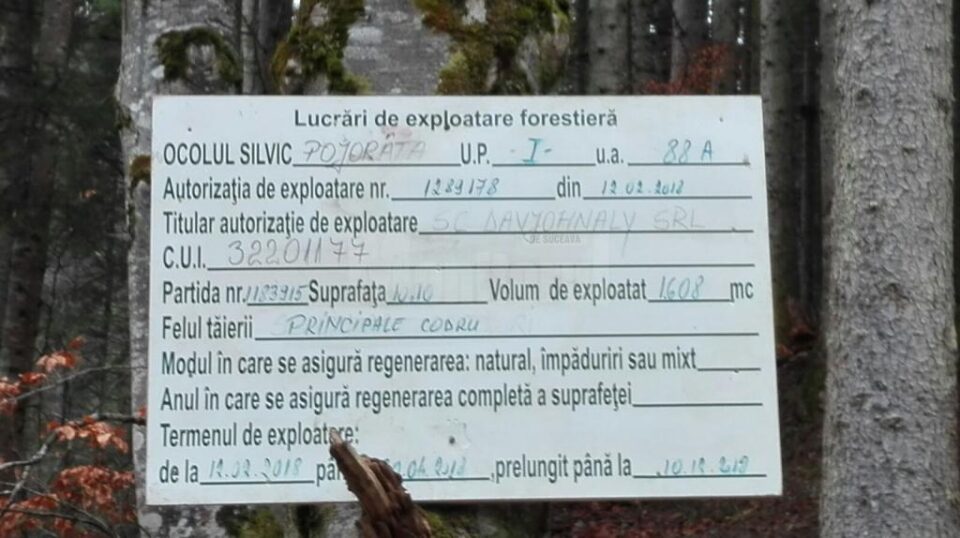 Lucrări de exploatare forestieră
OCOLUL SILVIC POJORÂTA U.P. -I- u.a. 88 A
Autorizaţia de exploatare nr. 1289178 din 12.02.2018
Titular autorizaţie de exploatare SC DAVJOHNALY SRL
DE SUCEAVA
C.U.I. 32201177
Partida nr. 1183915 Suprafaţa 10.10 Volum de exploatat 1608 mc
Felul tăierii PRINCIPALE CODRU
Modul în care se asigură regenerarea: natural, împăduriri sau mixt
Anul în care se asigură regenerarea completă a suprafeţei
Termenul de exploatare:
de la 12.02.2018 04.2018 ,prelungit până la 10.12.2018